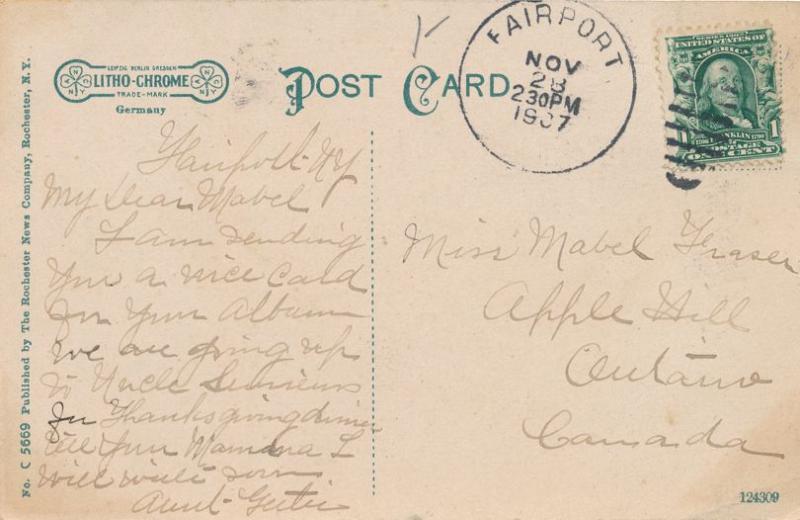 LEIPZIG BERLIN DRESDEN
LITHO-CHROME
TRADE-MARK
Germany
POST CARD
FAIRPORT
NOV
28
230PM
1907
SERIES 1902
UNITED STATES OF
AMERICA
FRANKLIN
1
POSTAGE
ONE CENT
No. C 5669 Published by The Rochester News Company, Rochester, N. Y.
Fairport NY
My Dear Mabel
I am sending
you a nice card
for your Album
we are going up
to Uncle
for Thanksgiving dinner
tell your Mamma I
will write soon
Aunt
Miss Mabel Fraser
Apple Hill
Ontario
Canada
124309